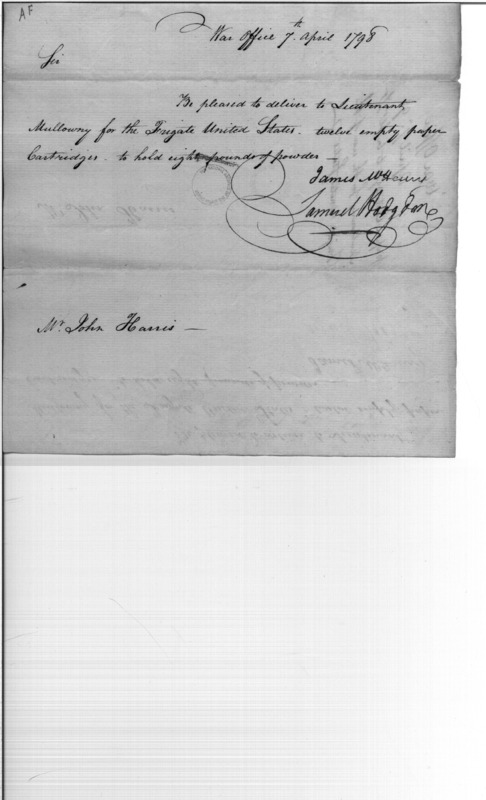 AF
War Office 7th April 1798
Sir
Be pleased to deliver to Lieutenant
Mullowny for the Frigate United States. twelve empty paper
Cartridges. to hold eight pounds of powder —
James McHenry
Samuel Hodgdon
Mr. John Harris —